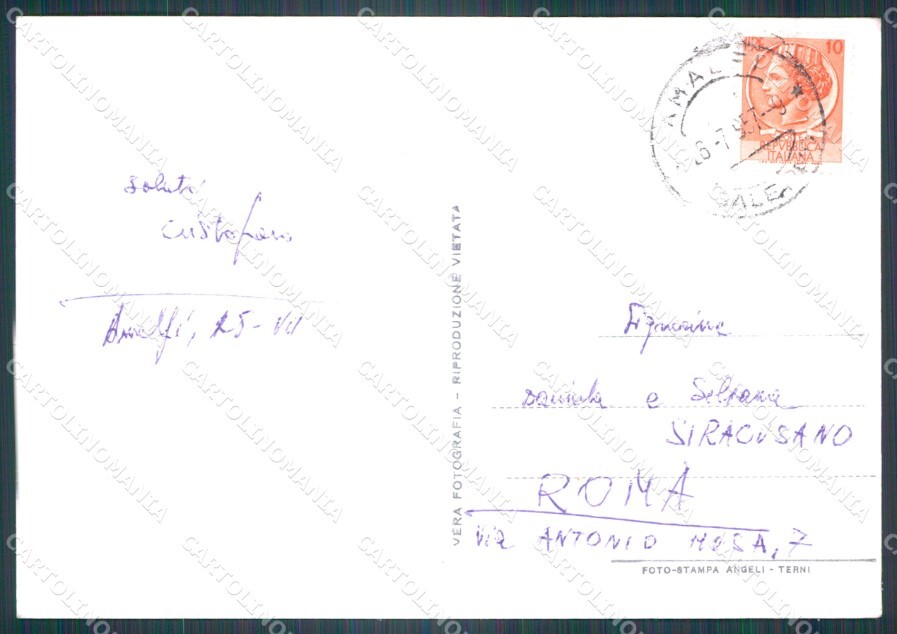 LIRE 10
AMALFI *
26-7-957-9
SALERNO
REPVBBLICA
ITALIANA
saluti
Amalfi, 25-VII
VERA FOTOGRAFIA - RIPRODUZIONE VIETATA
Signorine
Daniela e Silvana
SIRACUSANO
ROMA
Via ANTONIO MUSA, 7
FOTO-STAMPA ANGELI - TERNI
CARTOLINOMANIA